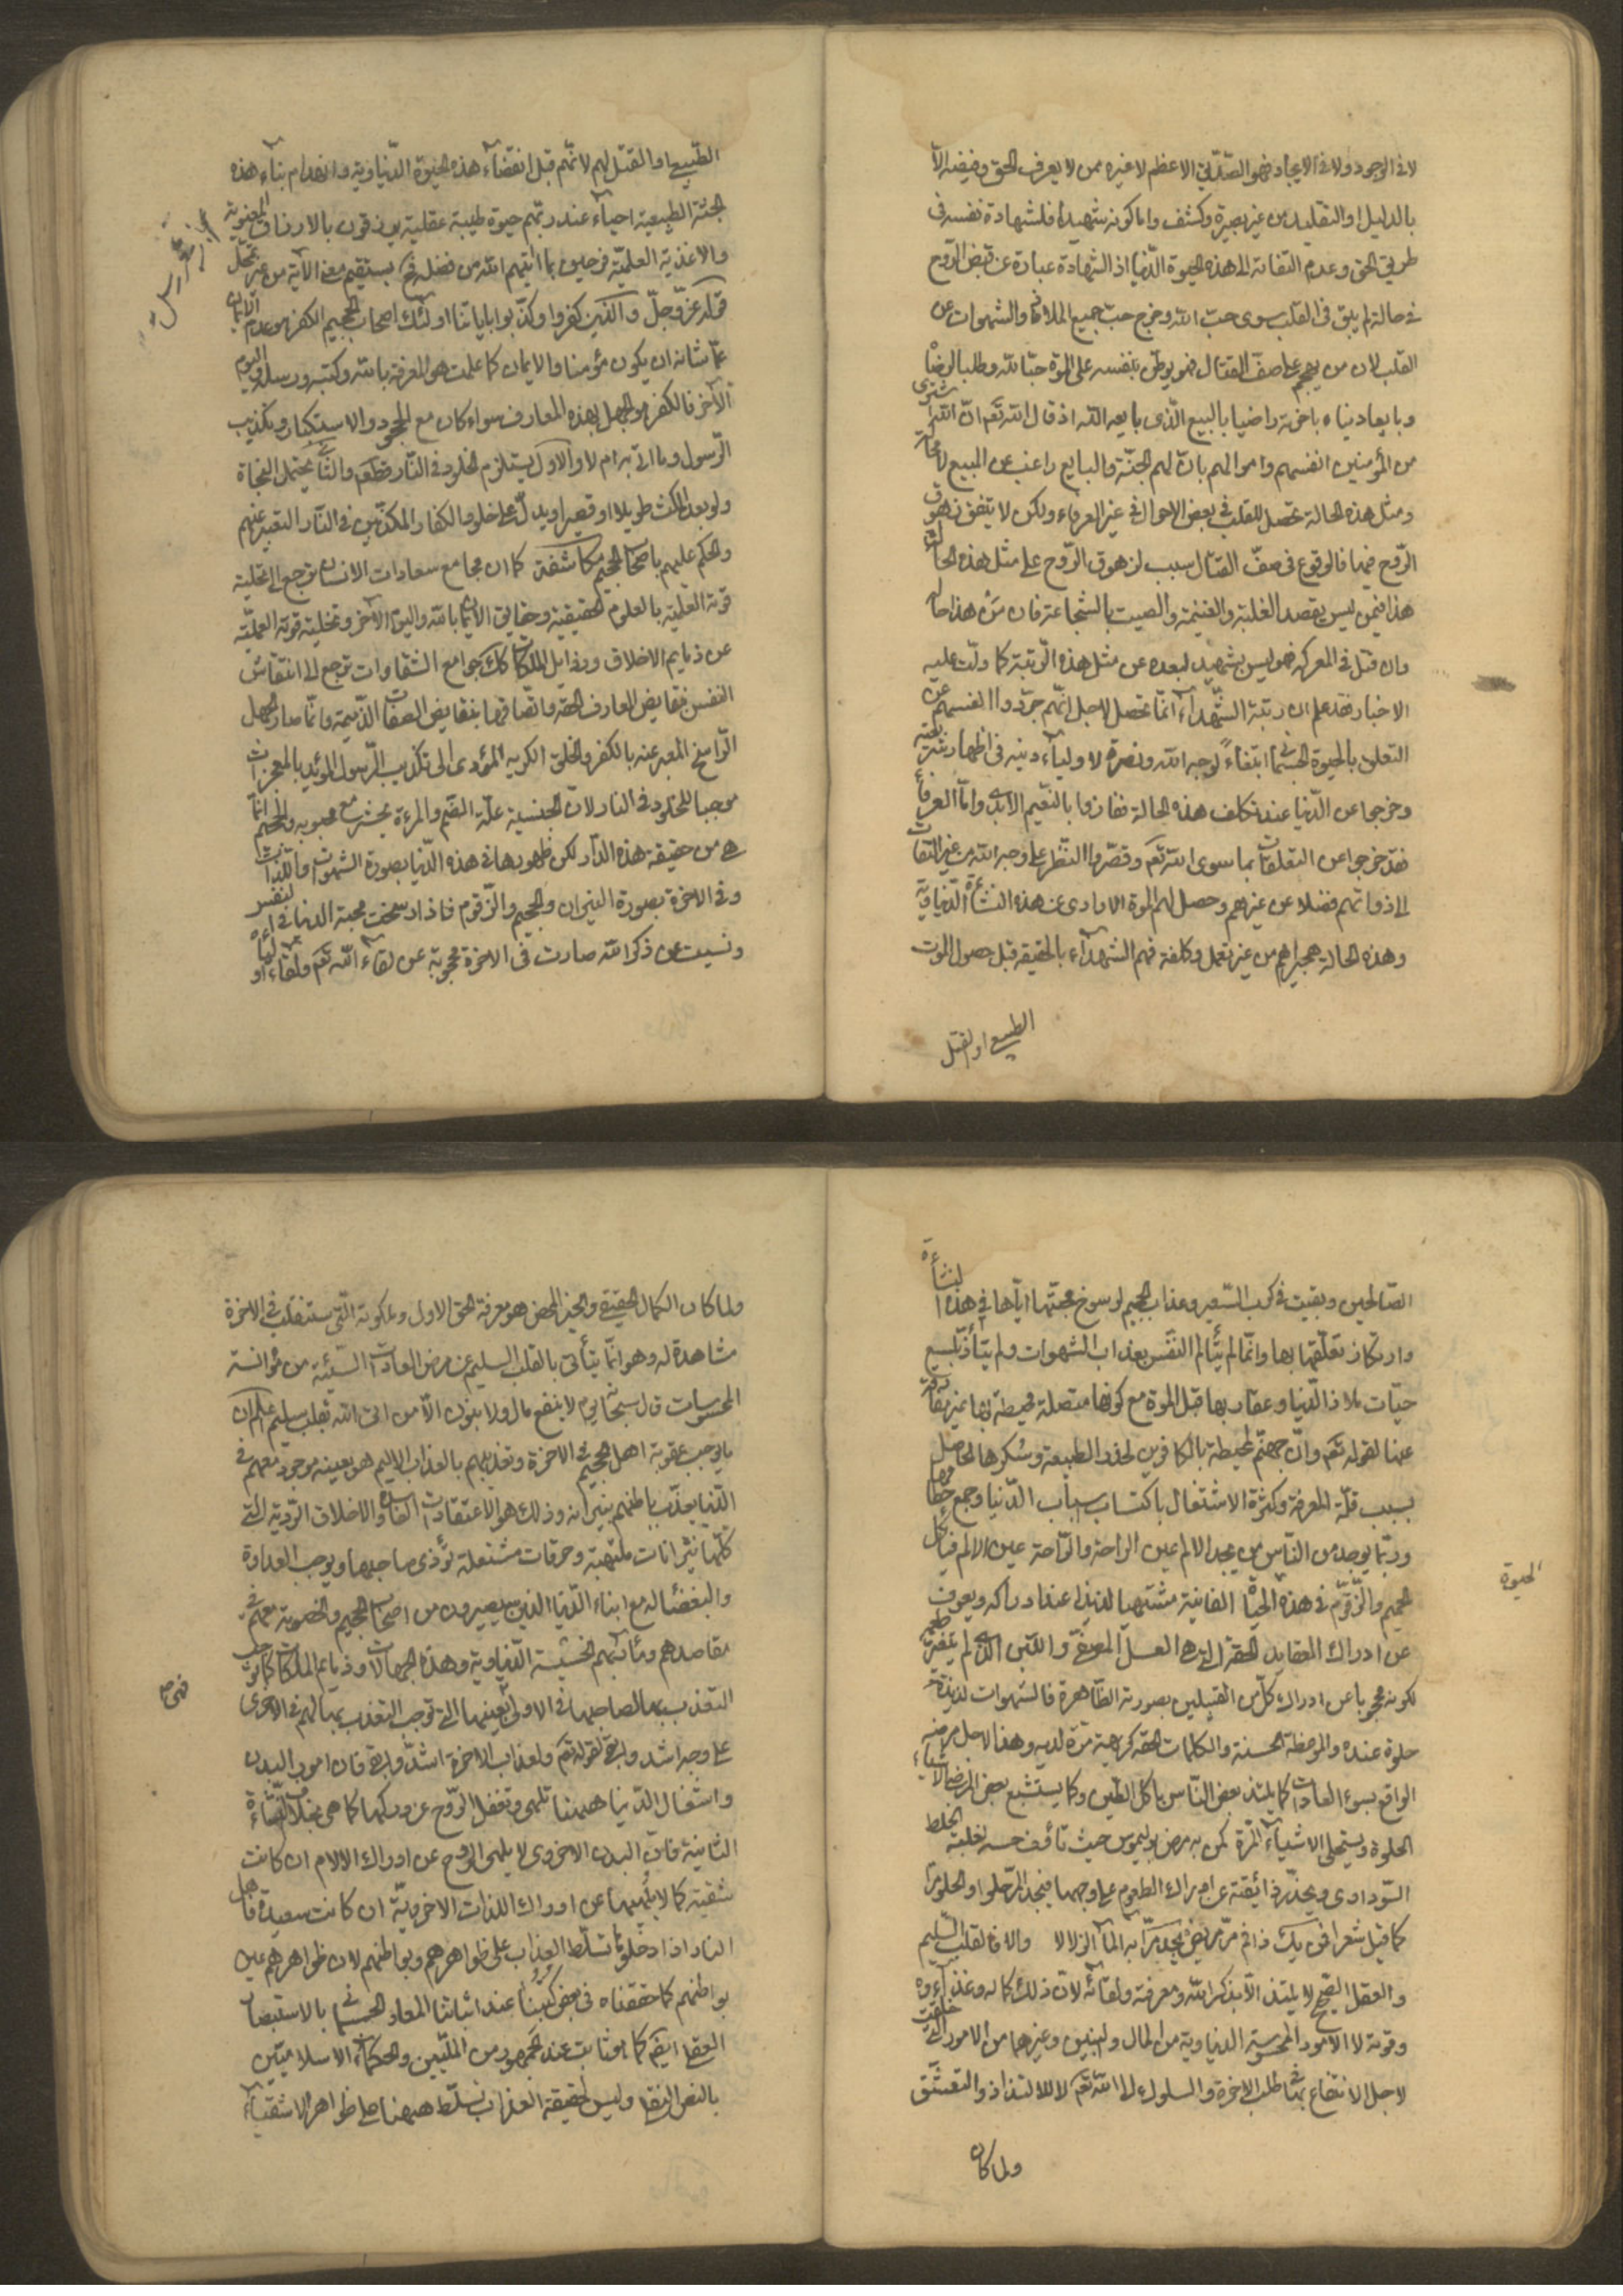 لا فى الوجود ولا فى الايجاد فهو الصدّيق الاعظم لا غيره ممن لا يعرف الحق وفيضه الا
بالدليل او التقليد من غير بصيرة وكشف واما كونه شهيدا فلشهادة نفسه فى
طريق الحق وعدم التفاته الى هذه الحيوة الدّنيا اذ الشهادة عبارة عن قبض الروح
فى حالة لم يبق فى القلب سوى حب الله وخرج حب جميع الملاذ والشهوات عن
القلب لان من يهجم على صف القتال فهو يوطّن بنفسه على الموت حبّا لله وطلبا لرضا
وبايعا دنياه باخرته راضيا بالبيع الّذى بايعه الله اذ قال الله تعم انّ الله اشترى
من المؤمنين انفسهم واموالهم بانّ لهم الجنّة والبايع راغب عن المبيع لا محالة
ومثل هذه الحالة تحصل للقلب فى بعض الاحوال فى غير العرفاء ولكن لا يتفق زهوق
الرّوح فيها فالوقوع فى صفّ القتال سبب لزهوق الرّوح على مثل هذه الحالة
هذا فيمن ليس يقصد الغلبة والغنيمة والصيت بالشجاعة فان من هذا حاله
وان قتل فى المعركة فهو ليس بشهيد لبعده عن مثل هذه الرّتبة كما دلّت عليه
الاخبار فقد علم ان رتبة الشهداء انّما تحصل لاجل انّهم جرّدوا انفسهم عن
التعلق بالحيوة الجسما ابتغاءً لوجه الله ونصرة لاولياء دينه فى اظهار شريعته
وخرجوا عن الدّنيا عند تكلف هذه الحالة ففازوا بالنّعيم الابدى وامّا العرفا
فقد خرجوا عن التعلقات بما سوى الله تعم وقصّروا النّظر على وجه الله من غير التفات
الى ذواتهم فضلا عن غيرهم وحصل لهم الموت الارادى عن هذه النشأة الدّنياويّة
وهذه الحالة هجيراهم من غير تعمل وكلفة فهم الشهداء بالحقيقة قبل حصول الموت
الطبيعى او القتل
الطّبيعى او القتل لهم لانّهم قبل انقضاء هذه الحيوة الدّنياوية وانهدام بناء هذه
الجثة الطبيعية احياء عند ربّهم حيوة طيبة عقلية يرزقون بالارزاق المعنوية
والاغذية العلميّة فرحين بما اتيهم الله من فضله فح يستقيم معنى الآية من غير تمحّل
قوله عزّ وجلّ والّذين كفروا وكذّبوا باياتنا اولئك اصحاب الجحيم الكفر هو عدم الايمان
عمّا شانه ان يكون مؤمنا والايمان كما علمت هو المعرفة بالله وكتبه ورسله واليوم
الآخر فالكفر هو الجهل بهذه المعارف سواء كان مع الجحود والاستكبار وتكذيب
الرّسول وما اتى به ام لا والاول يستلزم الخلود فى النّار قطعا والثانى يحتمل النجاة
ولو بعد المكث طويلا او قصيرا ويدلّ على خلود الكفار المكذّبين فى النّار التعبير عنهم
والحكم عليهم باصحاب الجحيم مكاشفة كما ان مجامع سعادات الانسان ترجع الى تحلية
قوته العلمية بالعلوم الحقيقية وحقايق الايمان بالله واليوم الآخر وتخلية قوته العمليّة
عن ذمايم الاخلاق ورذايل الملكات كك جوامع الشقاوات ترجع الى انتقاش
النفس بنقايض المعارف الحقة واتّصافها بنقايض الصفات الذّميمة وانّما صار الجهل
الرّاسخ المعبر عنه بالكفر والخلق الكريه المؤدى الى تكذيب الرّسول المؤيد بالمعجزات
موجبا للخلود فى النار لانّ الجنسية علّة الضّم والمرء يحشر مع محبوبه والجحيم انّما
هى من حقيقة هذه الدّار لكن ظهورها فى هذه الدّنيا بصورة الشهوات واللّذات
وفى الاخرة بصورة النيران والجحيم والزّقوم فاذا رسخت محبة الدنيا فى النفس
ونسيت عن ذكر الله صارت فى الاخرة محجوبة عن لقاء الله تعم ولقاء اوليائه
الصّالحين وبقيت فى كرب السّعير وعذاب الجحيم لرسوخ محبّتها ايّاها فى هذه النشأة
وارتكاز تعلّقها بها وانّما لم يتألم النّفس بعذاب الشهوات ولم يتأذّ بلسع
حيّات ملاذ الدّنيا وعقاربها قبل الموت مع كونها متصلة محيطة بها غير مفارقة
عنها لقوله تعم وانّ جهنّم لمحيطة بالكافرين لخدر الطبيعة وسُكرها الحاصل
بسبب قلّة المعرفة وكثرة الاشتغال باكتساب اسباب الدّنيا وجمع حطامها
وربّما يوجد من النّاس من يجد الالم عين الراحة والرّاحة عين الالم فياكل
الحميم والزّقوم فى هذه الحياة الفانية مشتهيا لذيذا عند ادراكه ويعوف
الحيوة
عن ادراك العقايد الحقة الّتى هى العسل المصفّى واللّبن الّذى لم يتغير طعمه
لكونه محجوبا عن ادراك كلّ من القبيلين بصورته الظّاهرة فالشهوات لذيذة
حلوة عنده والموعظة الحسنة والكلمات الحقة كريهة مرّة لديه وهذا لاجل مرضه
الواقع بسوء العادات كما يلتذ بعض النّاس باكل الطّين وكما يستشبع بعض المرضى الاشياء
الحلوة ويستحلى الاشياء المرّة كمن به مرض بوليموس حيث تأف حسه لغلبة الخلط
السّوداوى ويخدّر ذائقته عن ادراك الطعوم على وجهها فيجد المرّ حلوا والحلو مرّا
كما قيل شعرا فمن يك ذا فم مرّ مريض يجد مرّا به الماء الزلالا والا فالقلب السّليم
والعقل الصّحيح لا يلتذ الّا بذكر الله ومعرفة ولقائه لانّ ذلك كماله وغذاؤه
وقوته لا الامور المحسوسة الدنياوية من المال والبنين وغيرهما من الامور الّتى خلقت
لاجل الانتفاع بها فى طلب الاخرة والسلوك الى الله تعم لا للالتذاذ والتعشّق
ولما كان
ولما كان الكمال الحقيقى والخير المحض هو معرفة الحق الاول وملكوته الّتى ستنقلب فى الاخرة
مشاهدة له وهو انّما يتأتى بالقلب السليم عن مرض العادات السّيئة من مؤانسة
المحسوسات قال سبحانه يوم لا ينفع مال ولا بنون الّا من اتى الله بقلب سليم اعلم ان
ما يوجب عقوبة اهل الجحيم فى الاخرة وتعذيبهم بالعذاب الاليم هو بعينه موجود معهم فى
الدّنيا يعذّب باطنهم بنيرانه وذلك هو الاعتقادات الفاسدة والاخلاق الرّدية الّتى
كلّها نيرانات ملتهبة وحرقات مشتعلة تؤذى صاحبها ويوجب العداوة
والبغضاء له مع ابناء الدّنيا الذين سيصيرون من اصحاب الجحيم والخصومة معهم فى
مقاصدهم ومآربهم الخسيسة الدّنياوية وهذه الجهالات وذمايم الملكات كما توجب
التعذب بها لصاحبها فى الاولى بعينها الّتى توجب التعذب بها لهم فى الاخرى
على وجه اشد وابقى لقوله تعم ولعذاب الاخرة اشدّ وابقى فان امور البدن
واشغال الدّنيا هيهنا تلهى وتغفل الرّوح عن دركها كما هى بخلاف النّشأة
الثانية فانّ البدن الاخروى لا يلهى الروح عن ادراك الالام ان كانت
شقية كما لا يلهيها عن ادراك اللذات الاخرويّة ان كانت سعيدة فاهل
النار اذا دخلوها تسلّط العذاب على ظواهرهم وبواطنهم لان ظواهرهم عين
بواطنهم كما حققناه فى بعض كتبنا عند اثباتنا المعاد الجسمانى بالاستبصار
العقلى ايضم كما هو ثابت عند الجمهور من الملّيين والحكماء الاسلاميّين
بالنص النقلى وليس لحقيقة العذاب تسلّط هيهنا على ظواهر الاشقياء